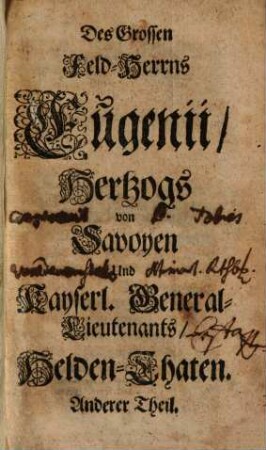 Des Grossen
Feld-Herrns
Eugenii/
Hertzogs
von
Savoyen
Und
Kayserl. General-
Lieutenants/
Helden-Thaten.
Anderer Theil.